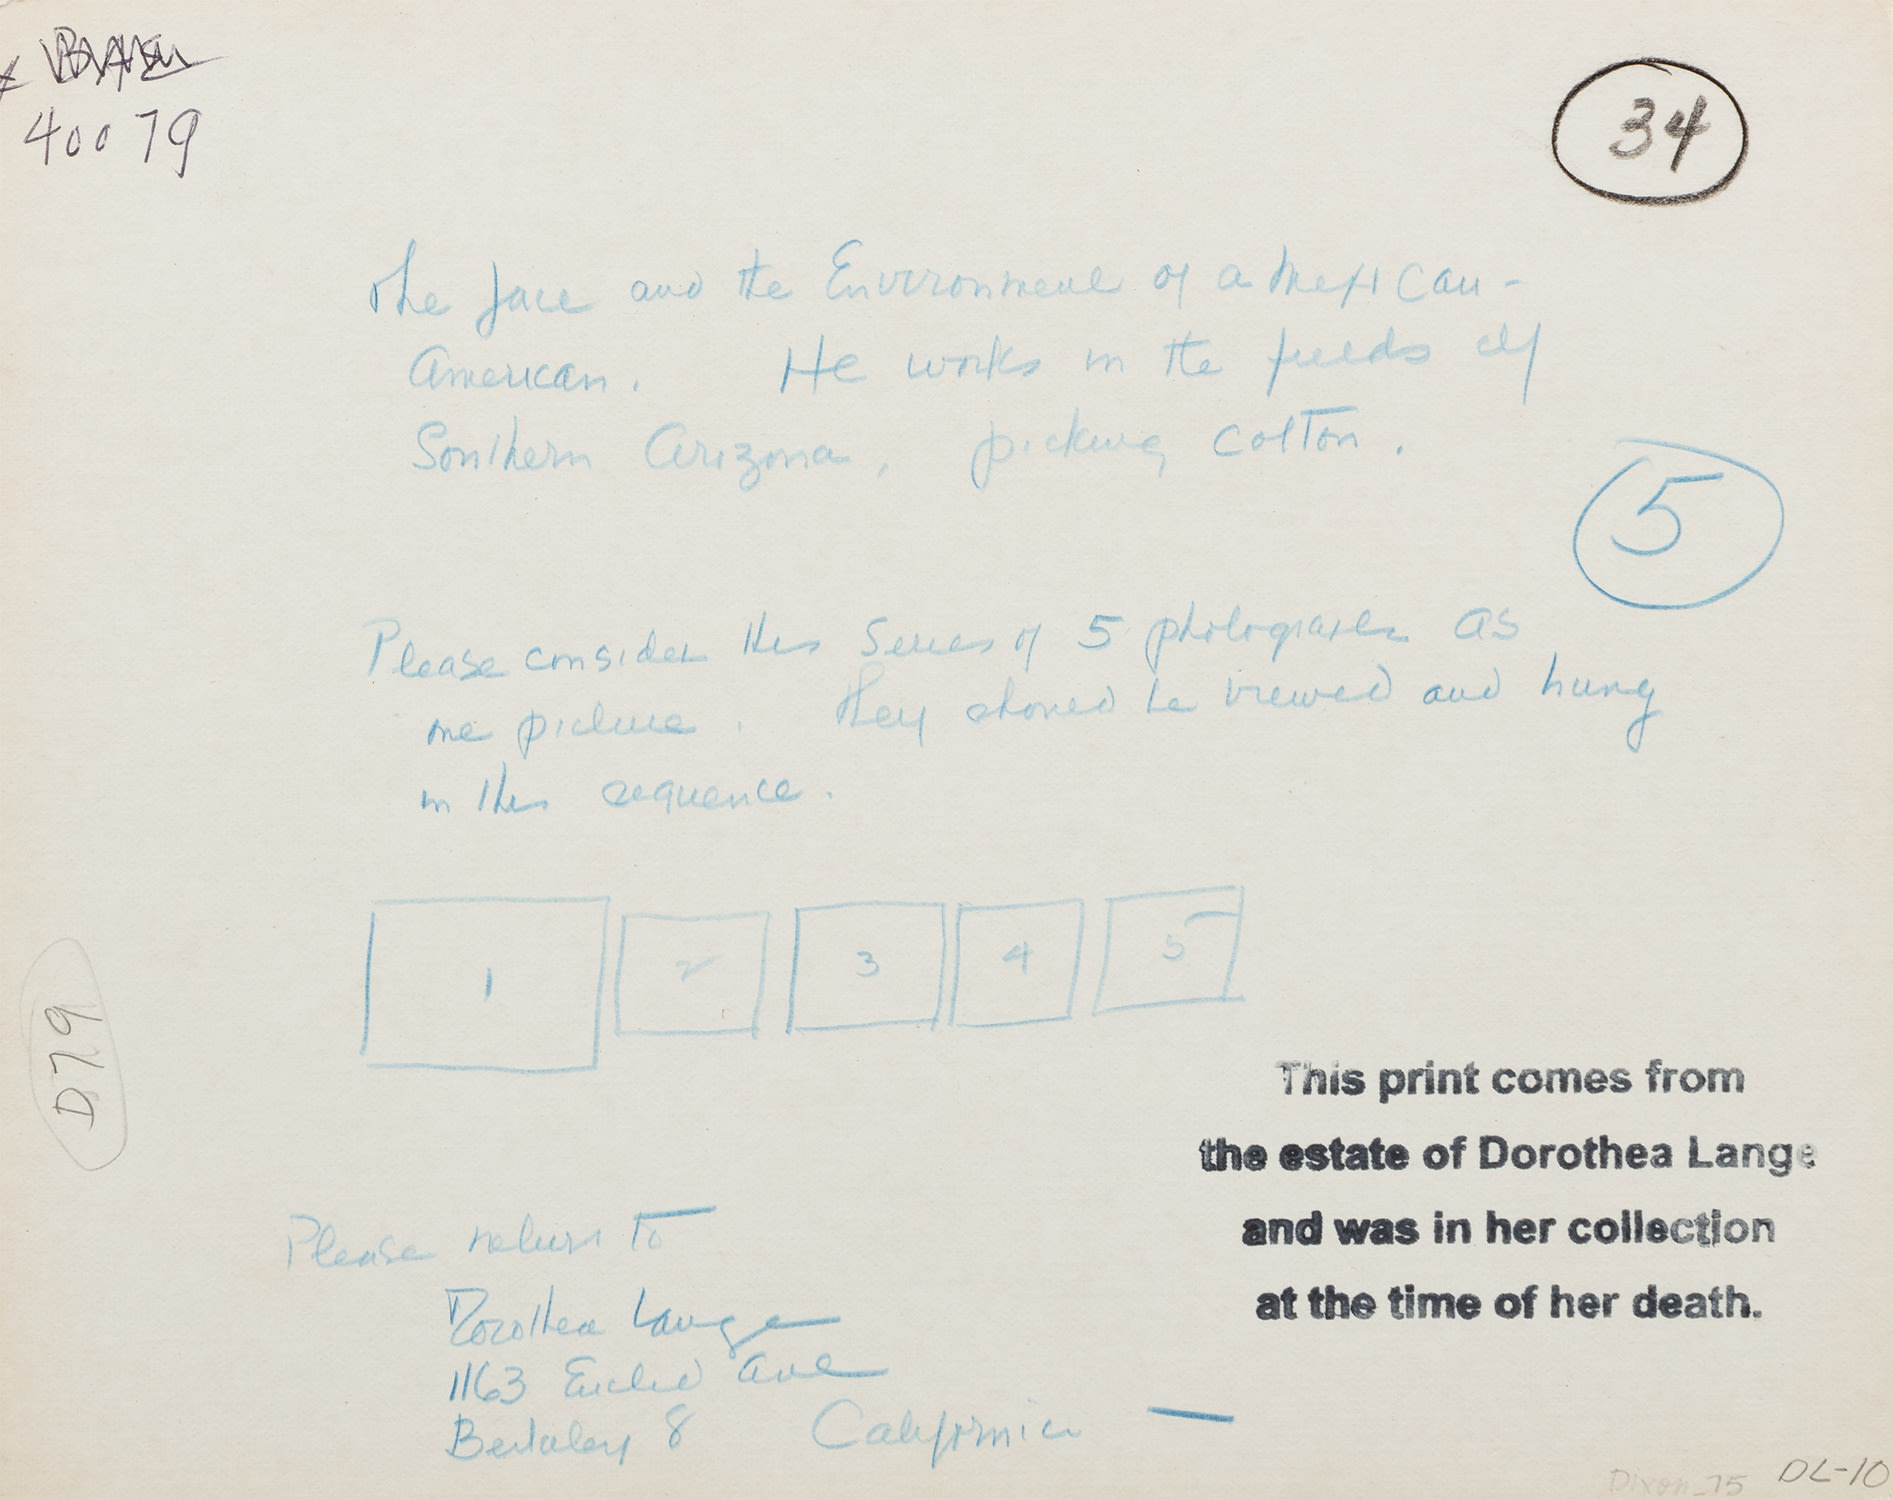 40079
34
The face and the Environment of a Mexican-
American. He works in the fields of
Southern Arizona, picking cotton.
5
Please consider this Series of 5 photographs as
one picture. They should be viewed and hung
in this sequence.
1 2 3 4 5
D79
This print comes from
the estate of Dorothea Lange
and was in her collection
at the time of her death.
Please return to
Dorothea Lange
1163 Euclid Ave
Berkeley 8 California
Dixon_75 DL-10